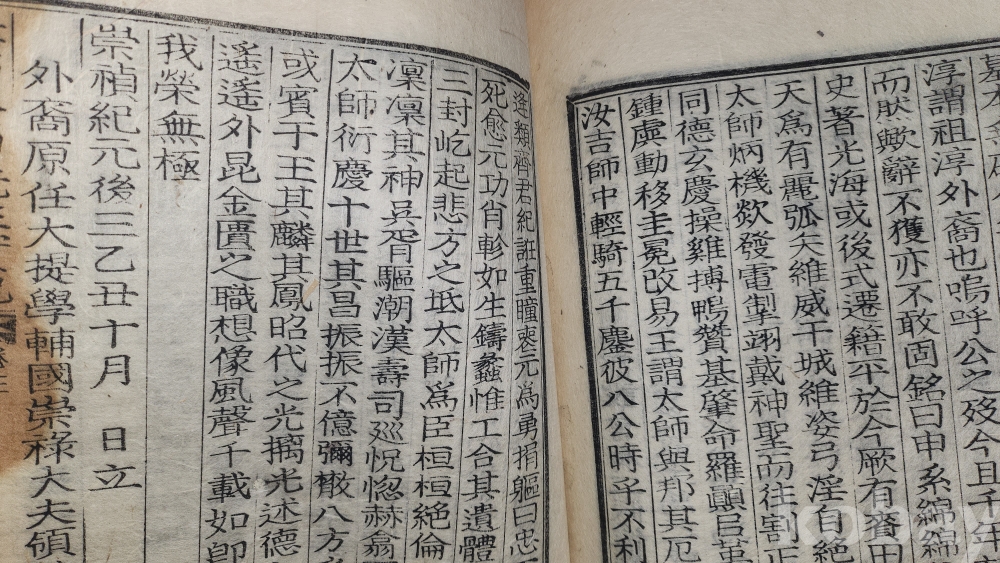 淳謂祖淳外裔也嗚呼公之歿今且千年
而肰歟辭不獲亦不敢固銘曰申系綿綿
史著光海或後式遷籍平於今厥有賚田
天爲有麗弧矢維威干城維姿弓淫自絶
太師炳機欻發電掣翊戴神聖而往割正
同德玄慶操雞搏鴨贊基肇命羅顚
鍾虡動移圭冕改易王謂太師與邦其厄
汝吉師中輕騎五千鏖彼八公時乎不利
遙類齊君紀誑重瞳喪元爲勇捐軀曰忠
死愈元功肖軫如生鑄蠡惟工合其遺體
三封屹起悲方之坻太師爲臣桓桓絶倫
凜凜其神吳胥驅潮漢壽司巡怳惚赫翕
太師衍慶十世其昌振振不億彌散八方
或賓于王其麟其鳳昭代之光光述德
遙遙外昆金匱之職想像風聲千載如卽
我榮無極
崇禎紀元後三乙丑十月 日立
外裔原任大提學輔國崇祿大夫領